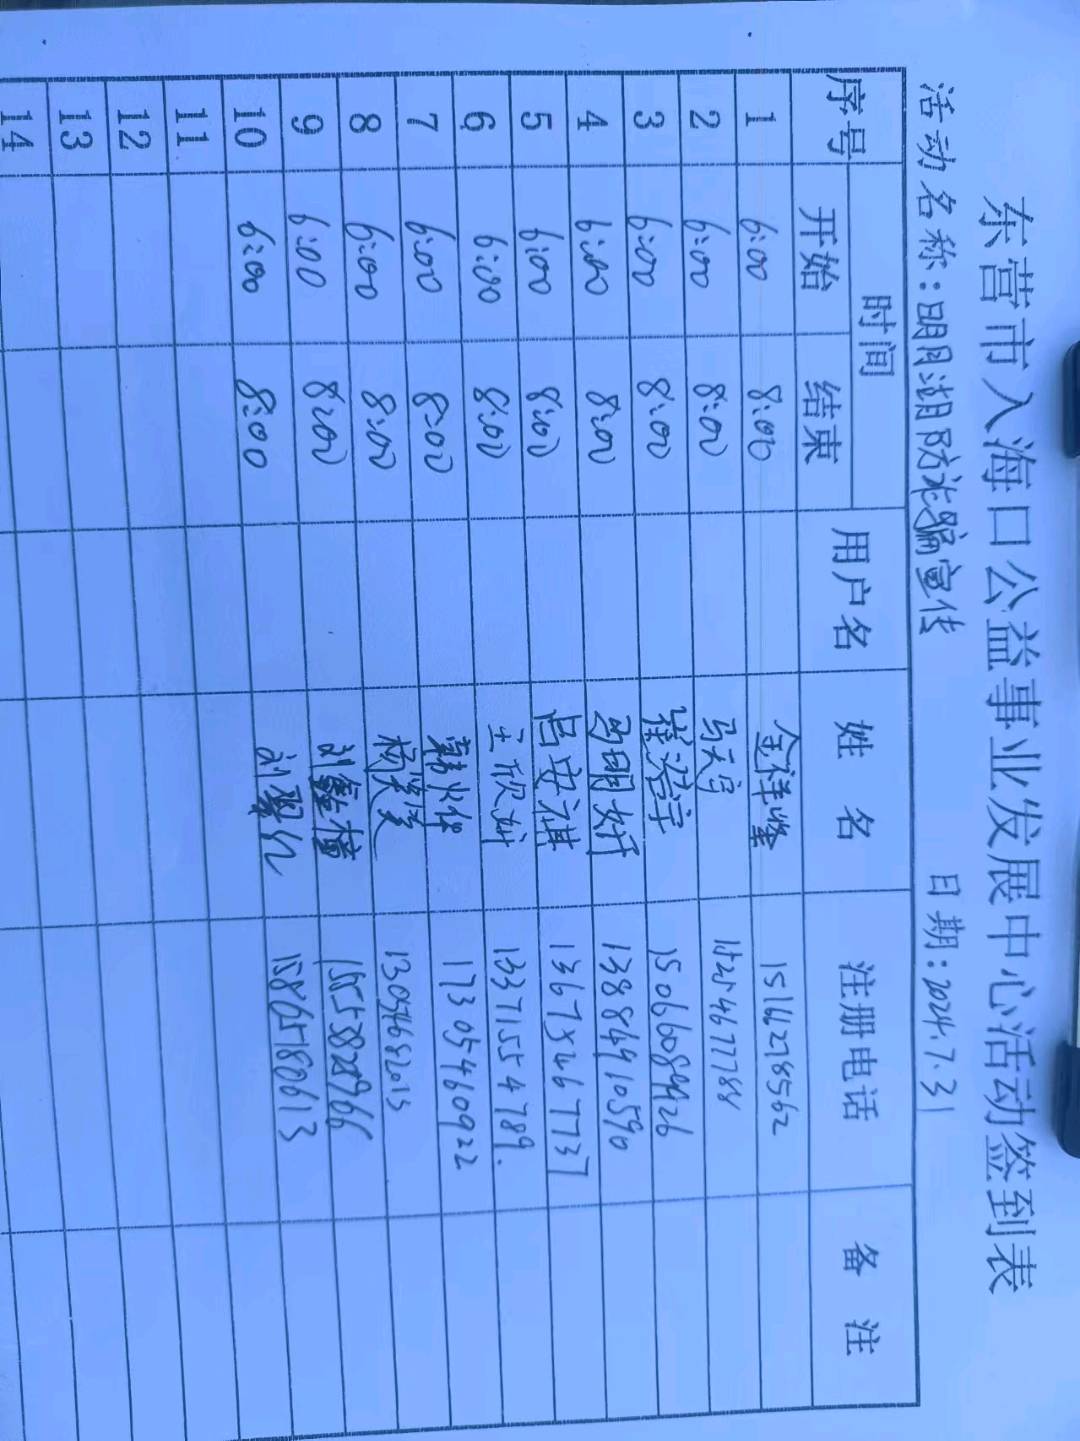 东营市入海口公益事业发展中心活动签到表
活动名称：明月湖防诈骗宣传 日期：2024.7.31
序号 时间 用户名 姓名 注册电话 备注
开始 结束
1 6:00 8:00 金祥峰 15166278562
2 6:00 8:00 马天宇 15254677788
3 6:00 8:00 崔浴宇 15066089926
4 6:00 8:00 马明妤 13886910590
5 6:00 8:00 吕安祺 13675467737
6 6:00 8:00 王欣妍 13371554789.
7 6:00 8:00 韩 17305460922
8 6:00 8:00 杨 13054682015
9 6:00 8:00 刘鑫樯 15558282966
10 6:00 8:00 刘 158657180613
11
12
13
14